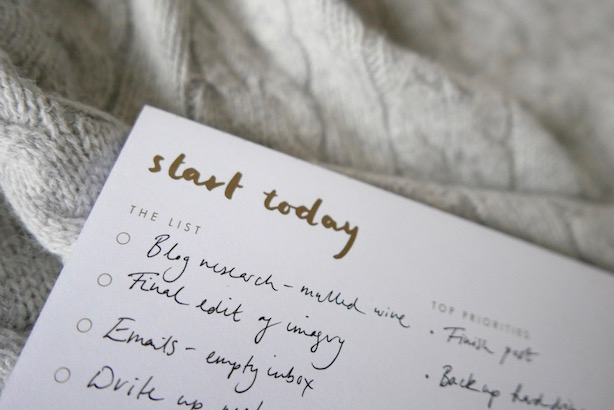 start today
THE LIST
Blog research - mulled wine
Final edit of imagery
Emails - empty inbox
Write up
TOP PRIORITIES
Finish post
Backup